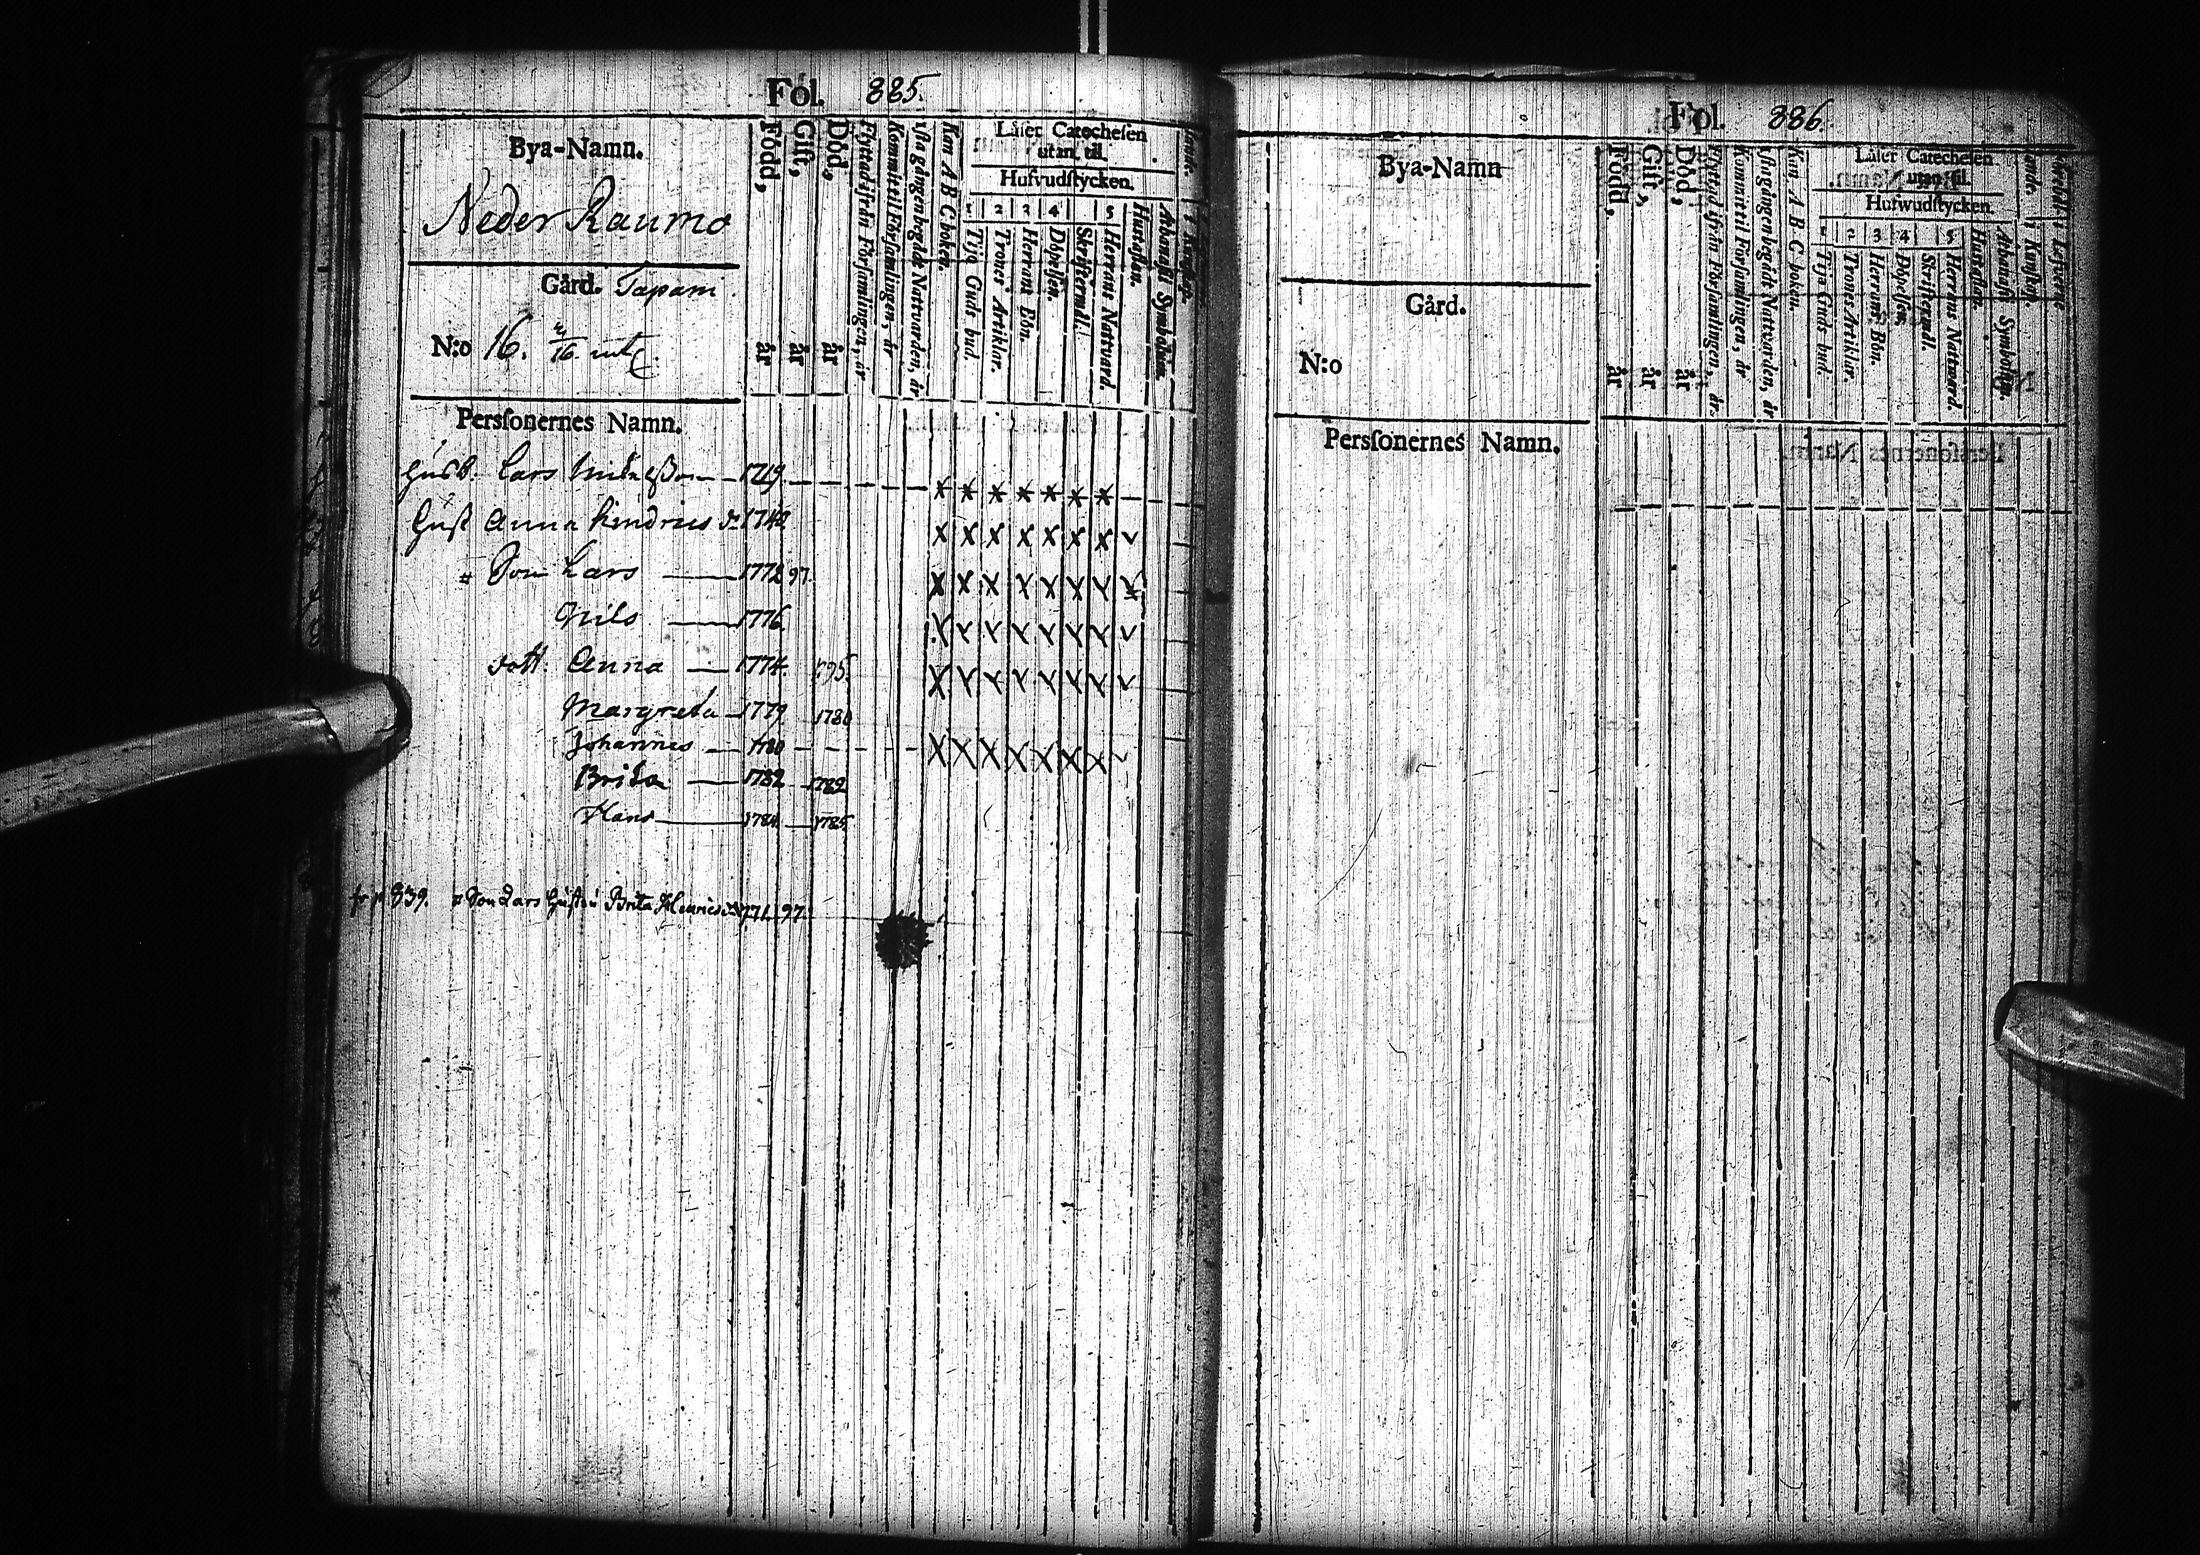 Fol. 885.
Bya-Namn.
Neder Raumo
Gård. Tapani
N:o 16.
Född, år
Gift, år
Död, år
Flyttad ifrån Församlingen, år
Kommit til Församlingen, år
1sta gången begådt Nattvarden, år
Kan A B C boken.
Läser Catechesen
utan til.
Hufvudstycken.
1 2 3 4 5
Tijo Guds bud.
Trones Artiklar.
Herrans Bön.
Döpelsen.
Skriftermål.
Herrans Nattvard.
Hustaflan.
Athanasii Symbolum.
Personernes Namn.
Lars 1749
Hust Anna Hendricsdr 1740
Son Lars 1772 97.
Nils 1776
dott. Anna 1774. 1795.
Margreta 1779 1780
Johannes 1780
Brita 1782 1782
Hans 1784 1785
fr p 839. Son Lars Hustru Brita Henricsdr 1771 97.
Fol. 886
Bya-Namn
Gård.
N:o
Född, år
Gift, år
Död, år
Flyttad ifrån Församlingen, år
Kommit til Församlingen, år
1sta gången begådt Nattvarden, år
Kan A B C boken.
Läser Catechesen
utan til.
Hufwudstycken.
1 2 3 4 5
Tijo Guds bud.
Trones Artiklar.
Herrans Bön.
Döpelsen.
Skriftermål.
Herrans Nattward.
Hustaflan.
Athanasii Symbolum.
i Kunskap
i Lefverne
Personernes Namn.